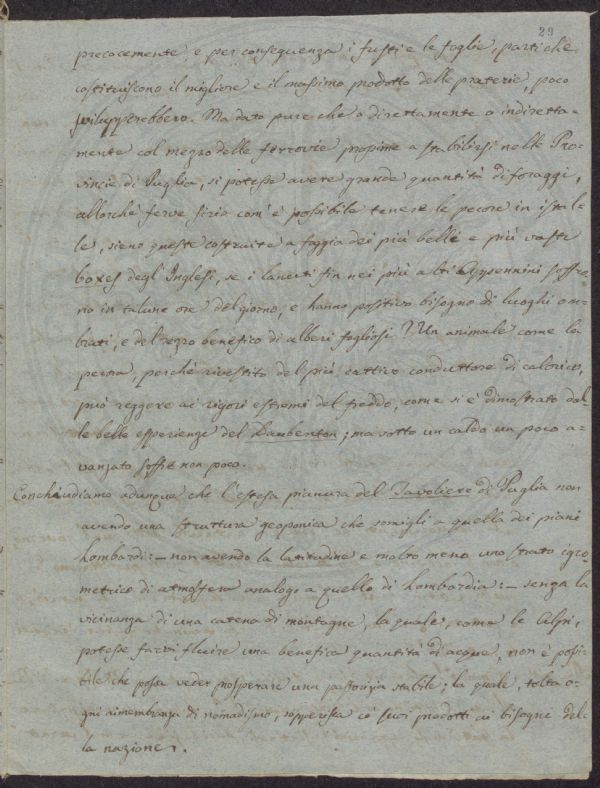 29
precocemente e per conseguenza i fusti e le foglie, parti che
costituiscono il migliore e il massimo prodotto delle praterie, poco
svilupperebbero. Ma dato pure che o direttamente o indiretta-
mente col mezzo delle ferrovie prossime a stabilirsi nelle Pro-
vincie di Puglia, si potesse avere grande quantità di foraggi,
allorchè ferve sirio com'è possibile tenere le pecore in istal-
le, sieno queste costruite a foggia dei più belle e più vaste
boxes degl'Inglesi, se i lanuti fin nei più alti Appennini soffro-
no in talune ore del giorno, e hanno positivo bisogno di luoghi om-
brati, e del rezzo benefico di alberi fogliosi? Un animale come la
pecora, perchè rivestito del più cattivo conduttore di calorico,
può reggere ai rigori estremi del freddo, come si è dimostrato dal-
le belle esperienze del Daubenton; ma sotto un caldo un poco a-
vanzato soffre non poco.
Conchiudiamo adunque che l'estesa pianura del Tavoliere di Puglia non
avendo una struttura geoponica che somigli a quella dei piani
Lombardi: – non avendo la latitudine e molto meno uno strato igro-
metrico di atmosfera analogo a quello di Lombardia: – senza la
vicinanza di una catena di montagne, la quale, come le Alpi,
potesse farvi fluire una benefica quantità di acque, non è possi-
bile che possa veder prosperare una pastorizia stabile; la quale, tolta o-
gni rimembranza di nomadismo, sopperisca co' suoi prodotti ai bisogni del-
la nazione.